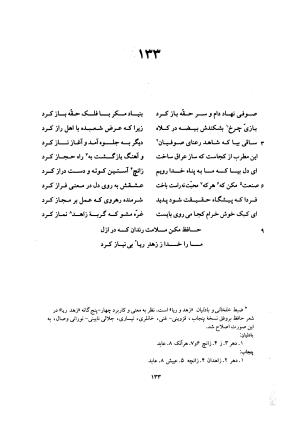 ۱۳۳
صوفی نهاد دام و سر حقّه باز کرد بنیاد مکر با فلک حقّه باز کرد
بازیّ چرخ۱ بشکندش بیضه در کلاه زیرا که عرض شعبده با اهل راز کرد
۳ ساقی بیا که شاهد رعنای صوفیان۲ دیگر به جلوه آمد و آغاز ناز کرد
این مطرب از کجاست که ساز عراق ساخت و آهنگ بازگشت به۳ راه حجاز کرد
ای دل بیا که ما به پناه خدا رویم زانچ۴ آستین کوته و دست دراز کرد
۶ صنعت۵ مکن که۶ هر که۷ محبّت نه راست باخت عشقش به روی دل در معنی فراز کرد
فردا که پیشگاه حقیقت شود پدید شرمنده رهروی که عمل بر مجاز کرد
ای کبک خوش خرام کجا می روی بایست غرّه مشو که گربهٔ زاهد۸ نماز کرد
۹ حافظ مکن ملامت رندان که در ازل
ما را خدا ز زهد ریا* بی نیاز کرد
* ضبط خلخالی و بادلیان: «زهد و ریا» است. نظر به معنی و کاربرد چهار-پنج گانه «زهد ریا» در
شعر حافظ بر وفق نسخهٔ پنجاب، قزوینی-غنی، خانلری، نیساری، جلالی نایینی-نورانی وصال، به
این صورت اصلاح شد.
بادلیان:
۱. دهر ۳. ز ۴. زانچ ۶و۷. هرآنک ۸. عابد
پنجاب:
۱. دهر ۲. زاهدان ۴. زانچه ۵. عیبش ۸. عابد
۱۳۳